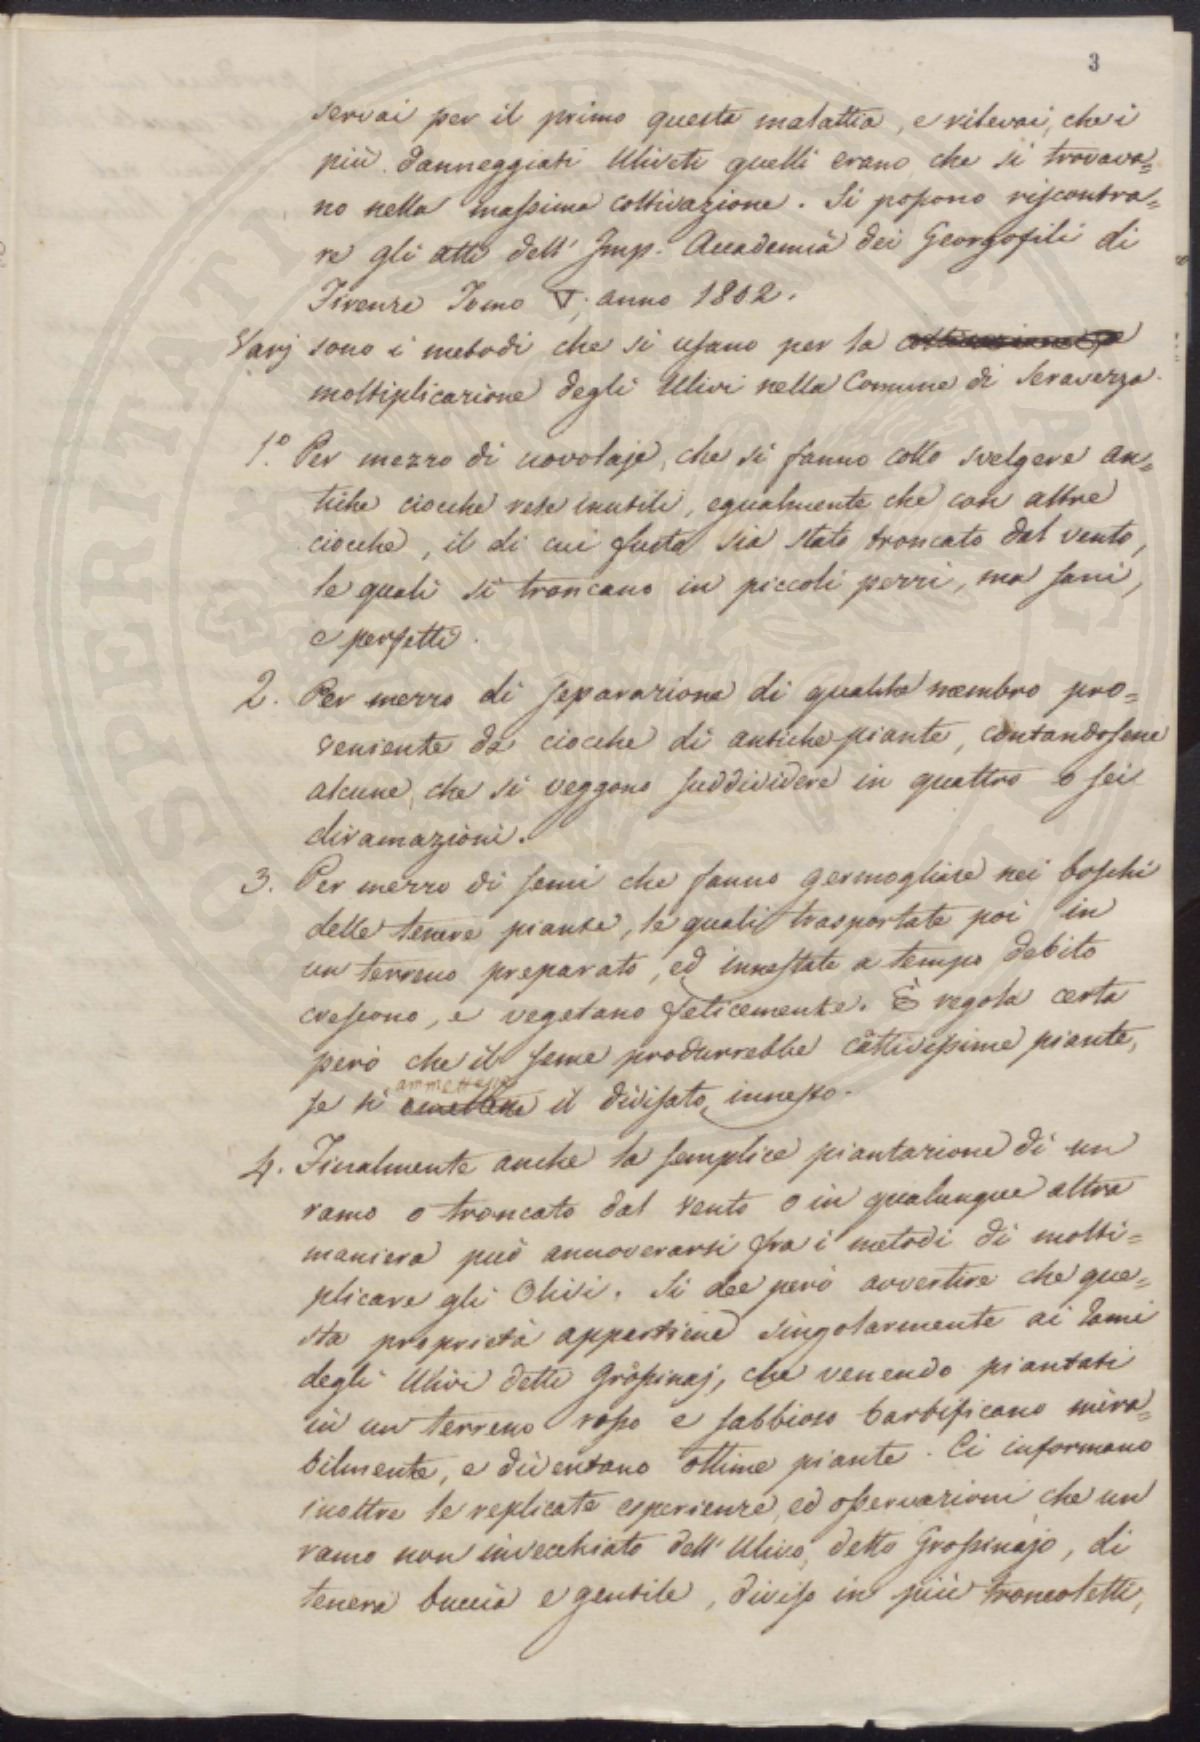 3
servai per il primo questa malattia, e rilevai, che i
più danneggiati Uliveti quelli erano, che si trovava=
no nella massima coltivazione. Si possono riscontra=
re gli atti dell' Imp. Accademia dei Georgofili di
Firenze Tomo V, anno 1802.
Varj sono i metodi che si usano per la coltivazione
moltiplicazione degli Ulivi nella Comune di Seravezza.
1.° Per mezzo di uovolaje, che si fanno collo svelgere an=
tiche ciocche rese inutili, egualmente che con altre
ciocche, il di cui fusto sia stato troncato dal vento,
le quali si troncano in piccoli pezzi, ma sani,
e perfetti.
2. Per mezzo di separazione di qualche membro pro=
veniente da ciocche di antiche piante, contandosene
alcune, che si veggono suddividere in quattro o sei
diramazioni.
3. Per mezzo di semi che fanno germogliare nei boschi
delle tenere piante, le quali trasportate poi in
un terreno preparato, ed innestate a tempo debito
crescono, e vegetano felicemente. È regola certa
però che il seme produrrebbe cattivissime piante,
se si ommettesse il divisato innesto.
4. Finalmente anche la semplice piantazione di un
ramo o troncato dal vento o in qualunque altra
maniera può annoverarsi fra i metodi di molti=
plicare gli Olivi. Si dee però avvertire che que=
sta proprietà appartiene singolarmente ai Rami
degli Ulivi detti Grossinaj, che venendo piantati
in un terreno rosso e sabbioso barbificano mira=
bilmente, e diventano ottime piante. Ci informano
inoltre le replicate esperienze, ed osservazioni, che un
ramo non invecchiato dell' Ulivo, detto Grossinajo, di
tenera buccia e gentile, diviso in più troncoletti,
PROSPERITATI PUBLICAE